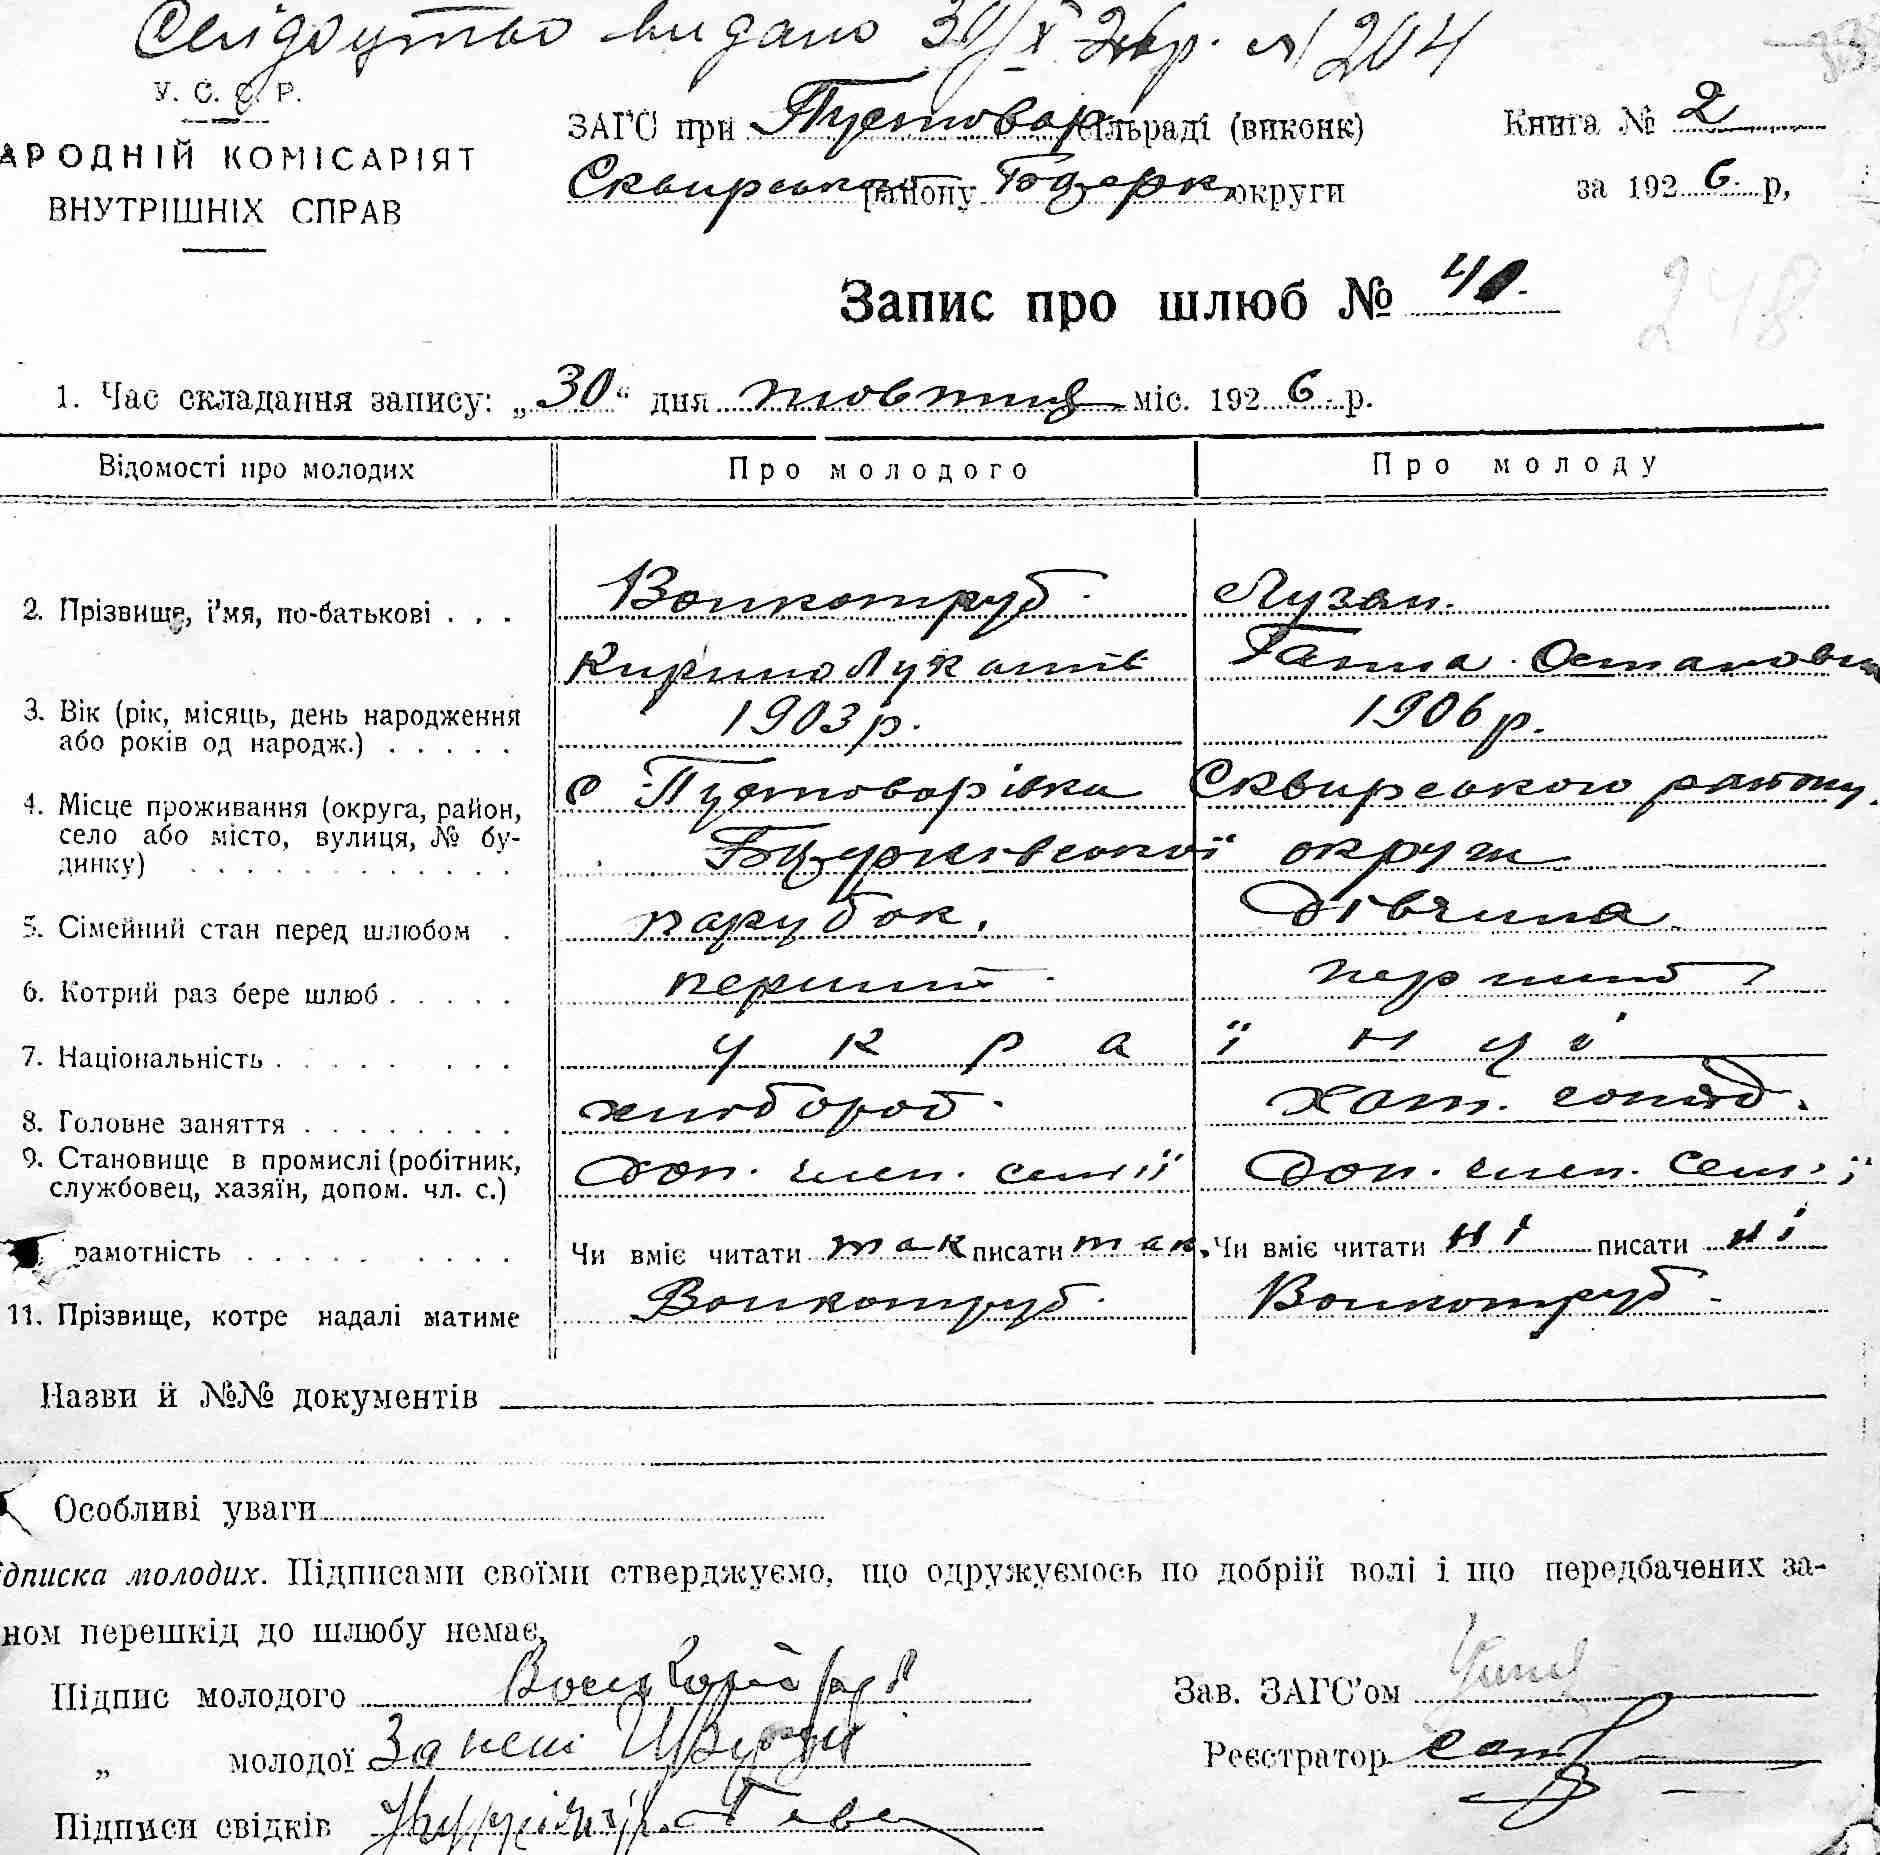 Свідоцтво видано 30/X 26 р. № 204
У. С. С. Р.
АРОДНІЙ КОМІСАРІЯТ
ВНУТРІШНІХ СПРАВ
ЗАГС при Пустовар сільраді (виконк)
Сквирського району Б.Церк. округи
Книга № 2
за 1926 р,
Запис про шлюб №
248
1. Час складання запису: „30“ дня жовтня міс. 1926 р.
Відомості про молодих Про молодого Про молоду
2. Прізвище, і'мя, по-батькові . . . Вовкотруб Лузан.
Кирило Лукатів Ганна Остаповна
3. Вік (рік, місяць, день народження 1903 р. 1906 р.
або років од народж.) . . . . .
4. Місце проживання (округа, район, с Пустоварівка Сквирського району.
село або місто, вулиця, № бу- Бцерківської округи
динку) . . . . . . . . . . . .
5. Сімейний стан перед шлюбом . парубок. дівчина
6. Котрий раз бере шлюб . . . . . перший перший
7. Національність . . . . . . . . українці
8. Головне заняття . . . . . . . . хлібороб. хат. господ.
9. Становище в промислі (робітник, доп. член. семії доп. член. семії
службовец, хазяїн, допом. чл. с.)
рамотність . . . . . . . . . . Чи вміє читати так писати так. Чи вміє читати ні писати ні
11. Прізвище, котре надалі матиме Вовкотруб. Вовкотруб
Назви й №№ документів
Особливі уваги
дписка молодих. Підписами своїми стверджуємо, що одружуємось по добрій волі і що передбачених за-
ном перешкід до шлюбу немає.
Підпис молодого Вовкотруб Зав. ЗАГС'ом
„ молодої За неї Реєстратор
Підписи свідків